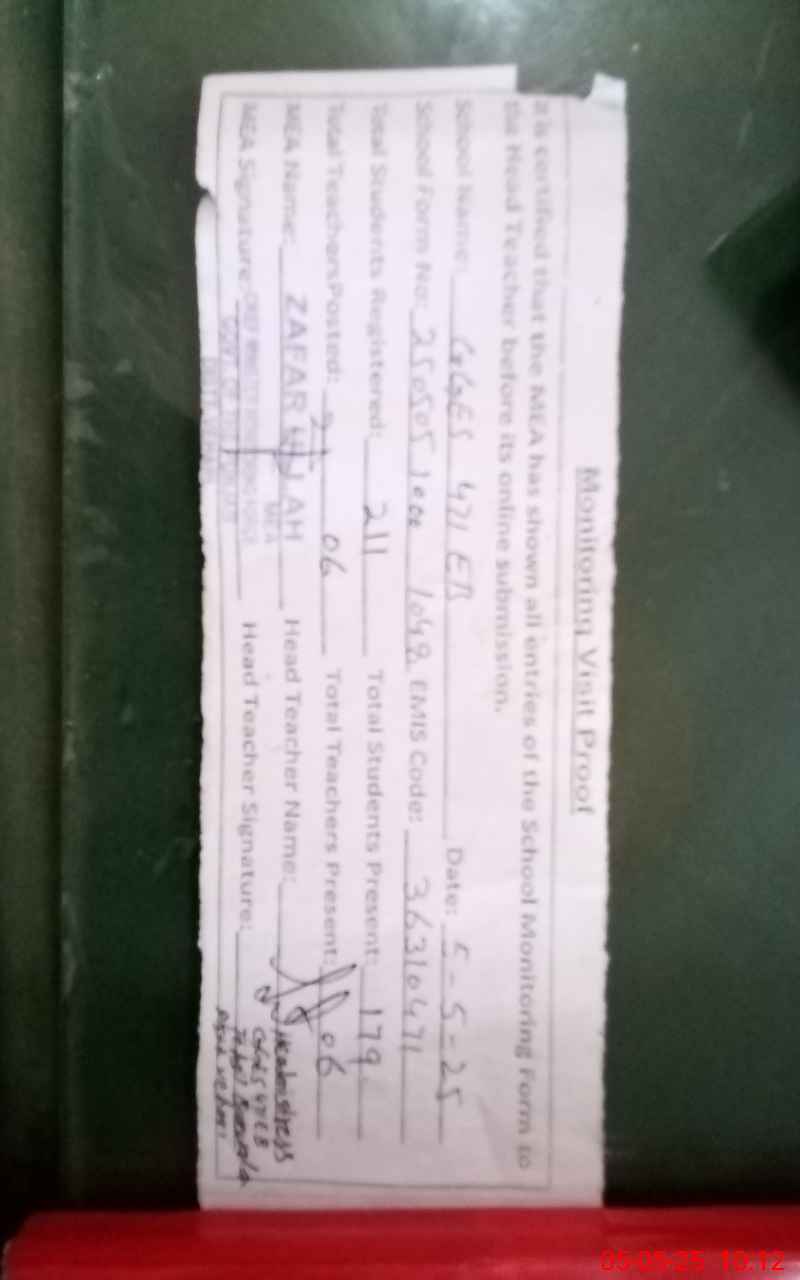 Monitoring Visit Proof
It is certified that the MEA has shown all entries of the School Monitoring Form to
the Head Teacher before its online submission.
School Name: GGES 471 EB Date: 5-5-25
School Form No: 250505 1000 1049 EMIS Code: 36310471
Total Students Registered: 211 Total Students Present: 179
Total Teachers Posted: 06 Total Teachers Present: 06
MEA Name: ZAFAR ULLAH Head Teacher Name:
MEA
MEA Signature: Head Teacher Signature:
Headmistress
05-05-25 10:12